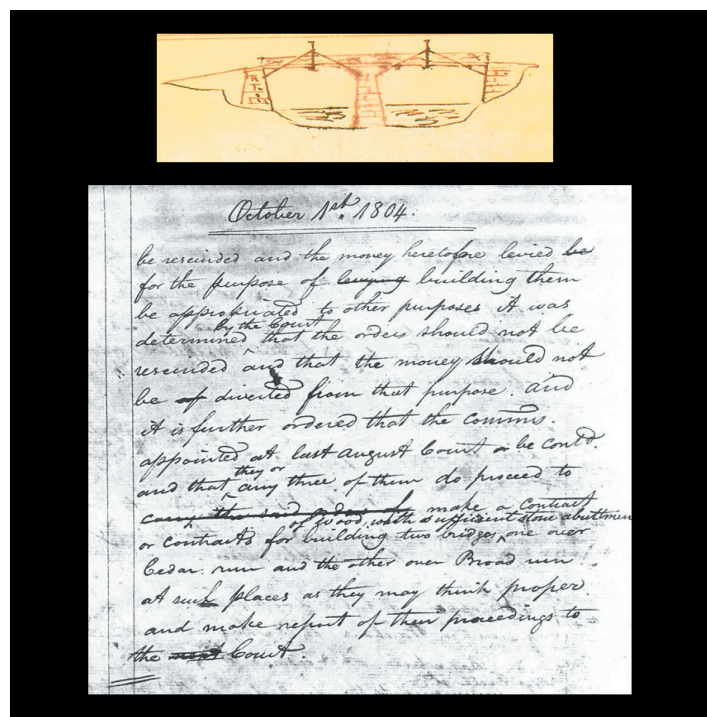 October 1st 1804.
be rescinded and the money heretofore levied be
for the purpose of levying building them
be appropriated to other purposes it was
by the Court
determined that the orders should not be
rescinded and that the money should not
be of diverted from that purpose. and
it is further ordered that the comms.
appointed at last August Court be contd.
they or
and that any three of them do proceed to
carry the said orders make a Contract
of wood, with sufficient stone abuttmen
or contracts for building two bridges, one over
Cedar run and the other over Broad run
at such places as they may think proper
and make report of their proceedings to
the next Court.